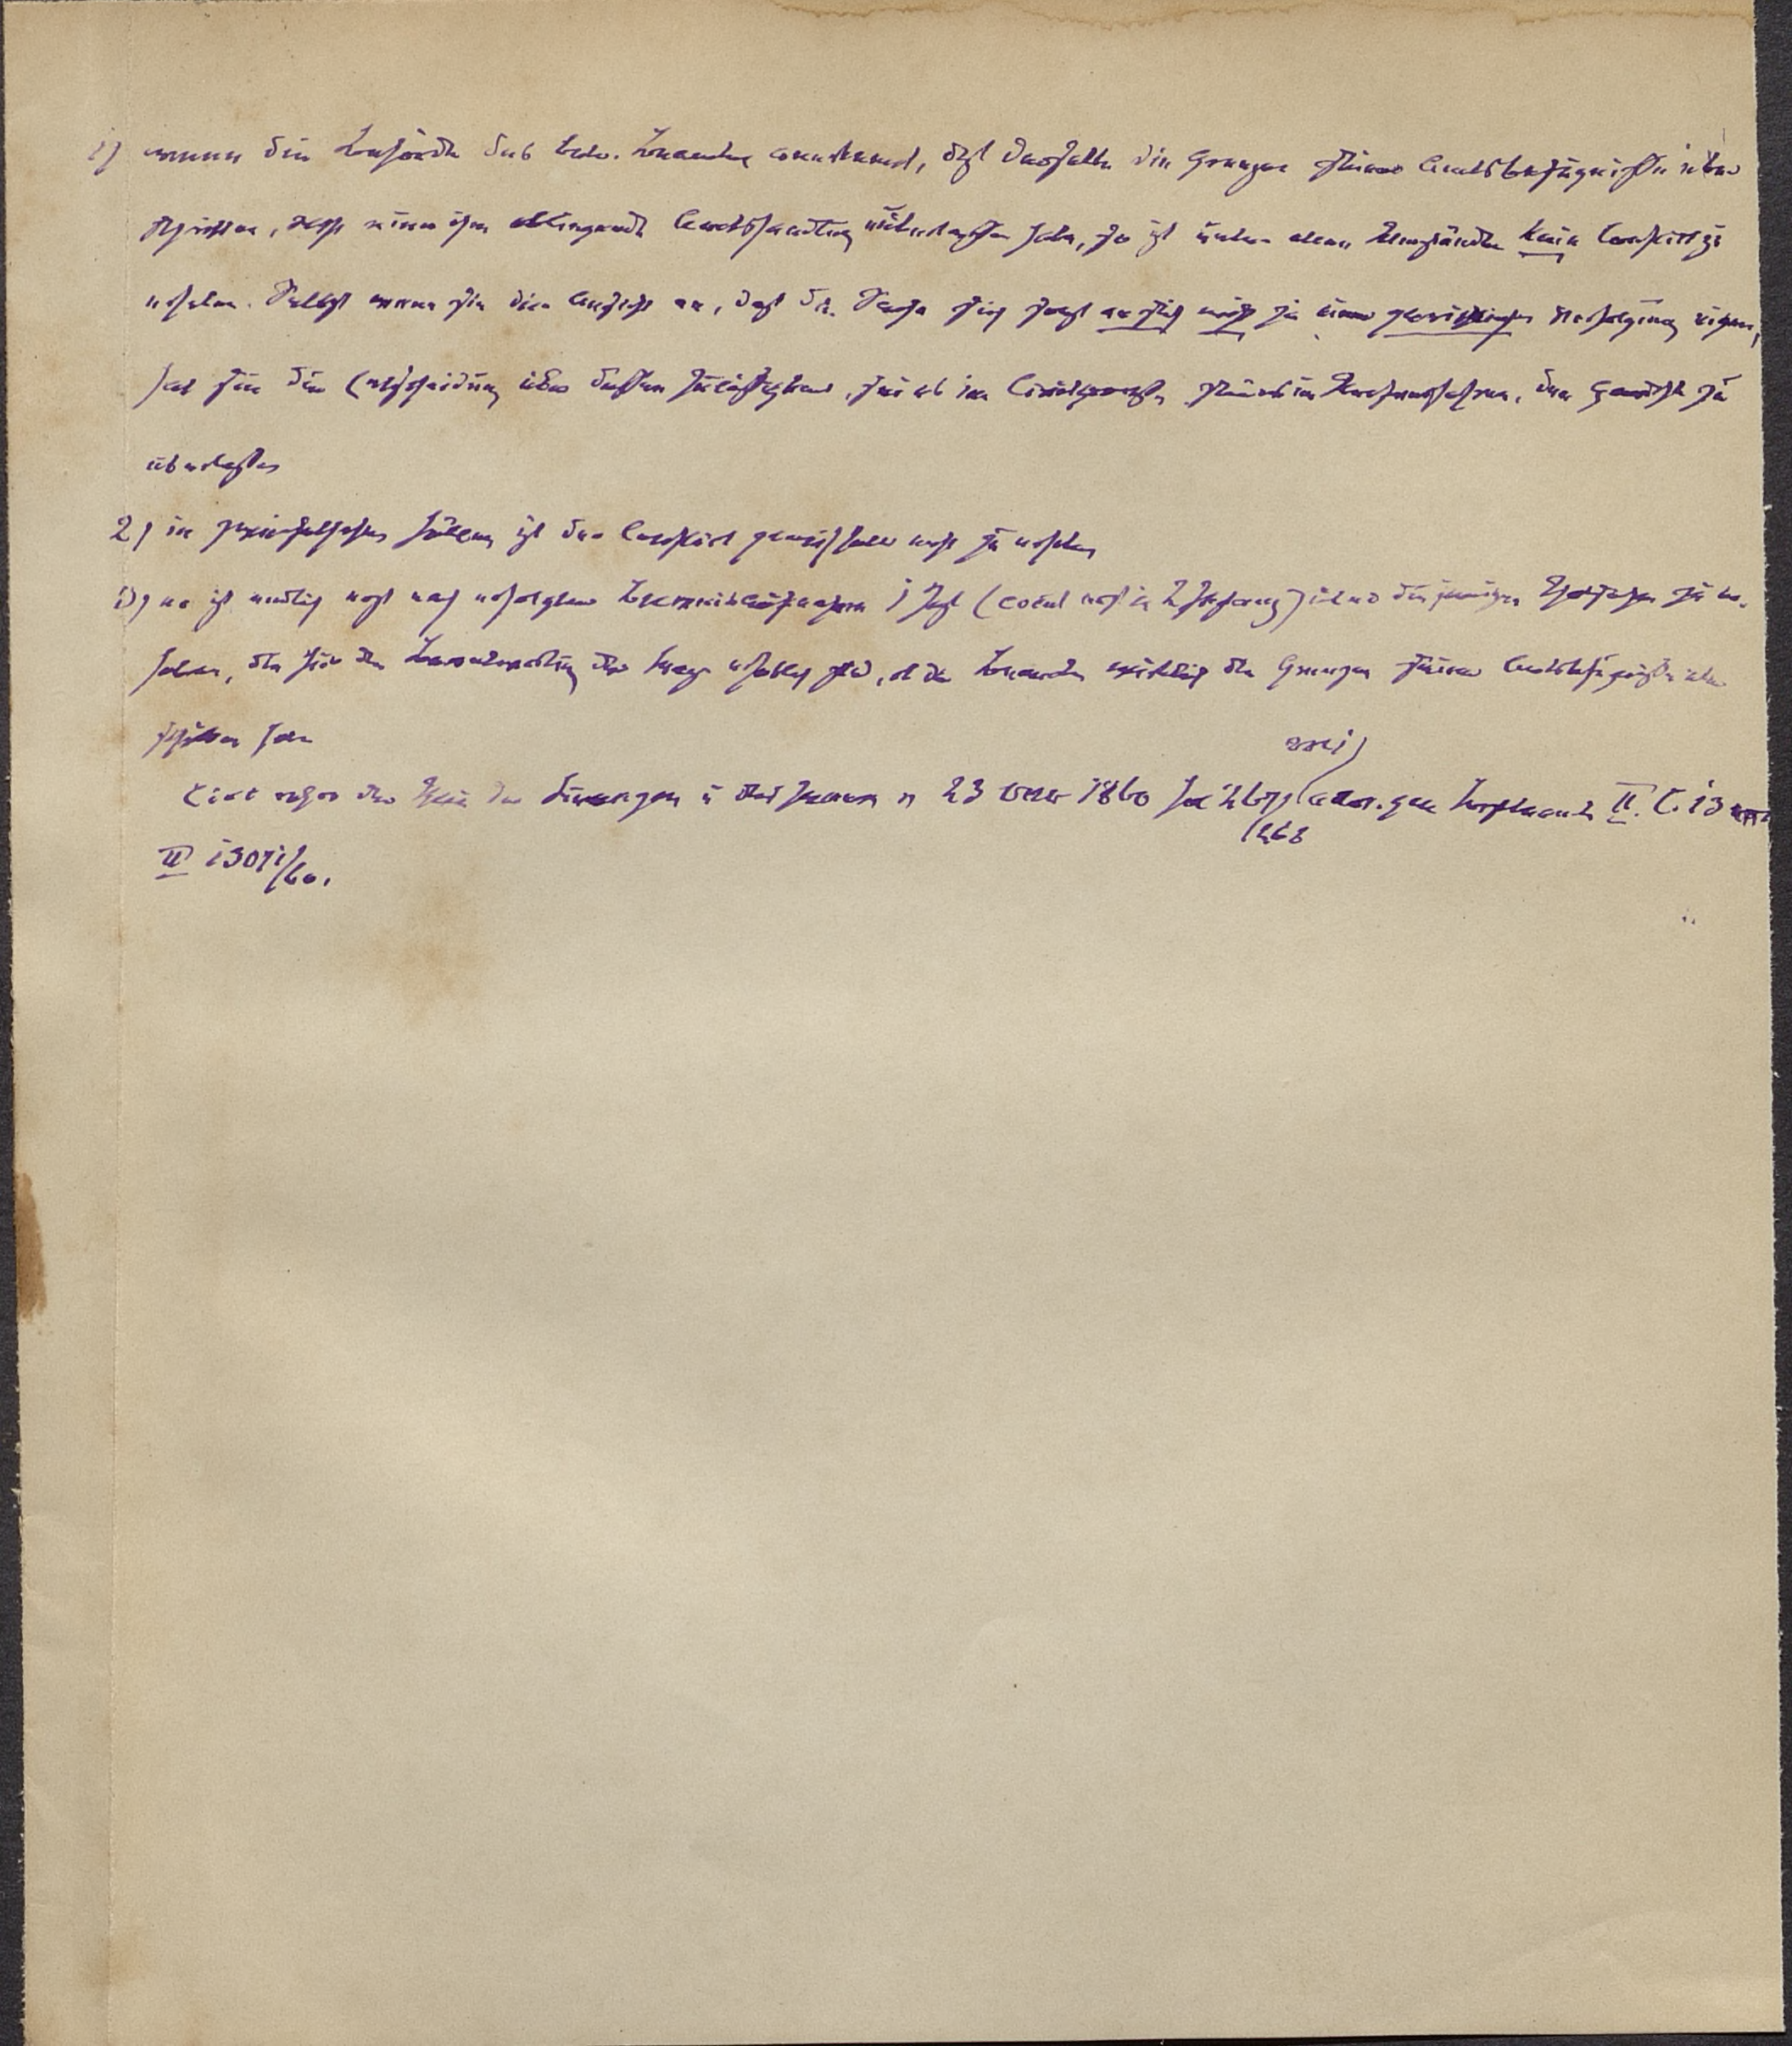 1) wenn die Behörde des betr. Beamten anerkennt, daß derselbe die Grenzen seiner Amtsbefugnisse über
schritten, oder eine ihm obliegende Amtshandlung unterlassen habe, so ist unter allen Umständen kein Conflict zu
erheben. Selbst wenn sie der Ansicht ist, daß die Sache sich sonst an sich nicht zu einer gerichtlichen Verfolgung eigne,
hat sie die Entscheidung über dessen Zulässigkeit, sei es im Civilprozeß, sei es im Strafverfahren, dem Gericht zu
überlassen
2) in zweifelhaften Fällen ist der Conflict gleichfalls nicht zu erheben
3) er ist endlich nicht nach erfolgter Beweisaufnahme I Inst (event nicht in 2 Instanz) über diejenigen Thatsachen zu er-
heben, die für die Beantwortung der Frage erheblich sind, ob der Beamte wirklich die Grenzen seiner Amtsbefugnisse über
schritten habe
der Finanzen u des Innern v 23 1860
II 1860.